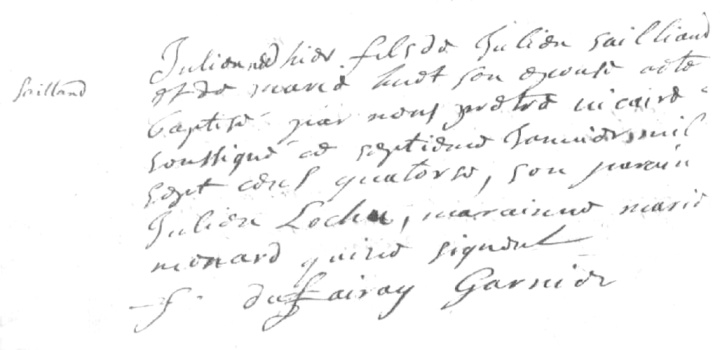 Sailland
Julien né d hier fils de Julien Sailland
et de marie huet son epouse a été
baptisé par nous prêtre vicaire
soussigné ce septieme Janvier mil
sept cens quatorse, son parain
Julien Lochu, marainne marie
menard qui ne signent
f. dufairay Garnier